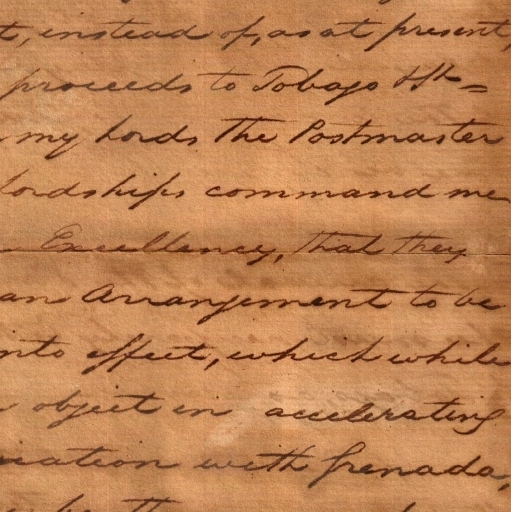 t, instead of, as at present,
proceeds to Tobago
my Lords the Postmaster
lordships command me
Excellency, that they
an Arrangement to be
nto effect, which while
object in accelerating
ication with Grenada,